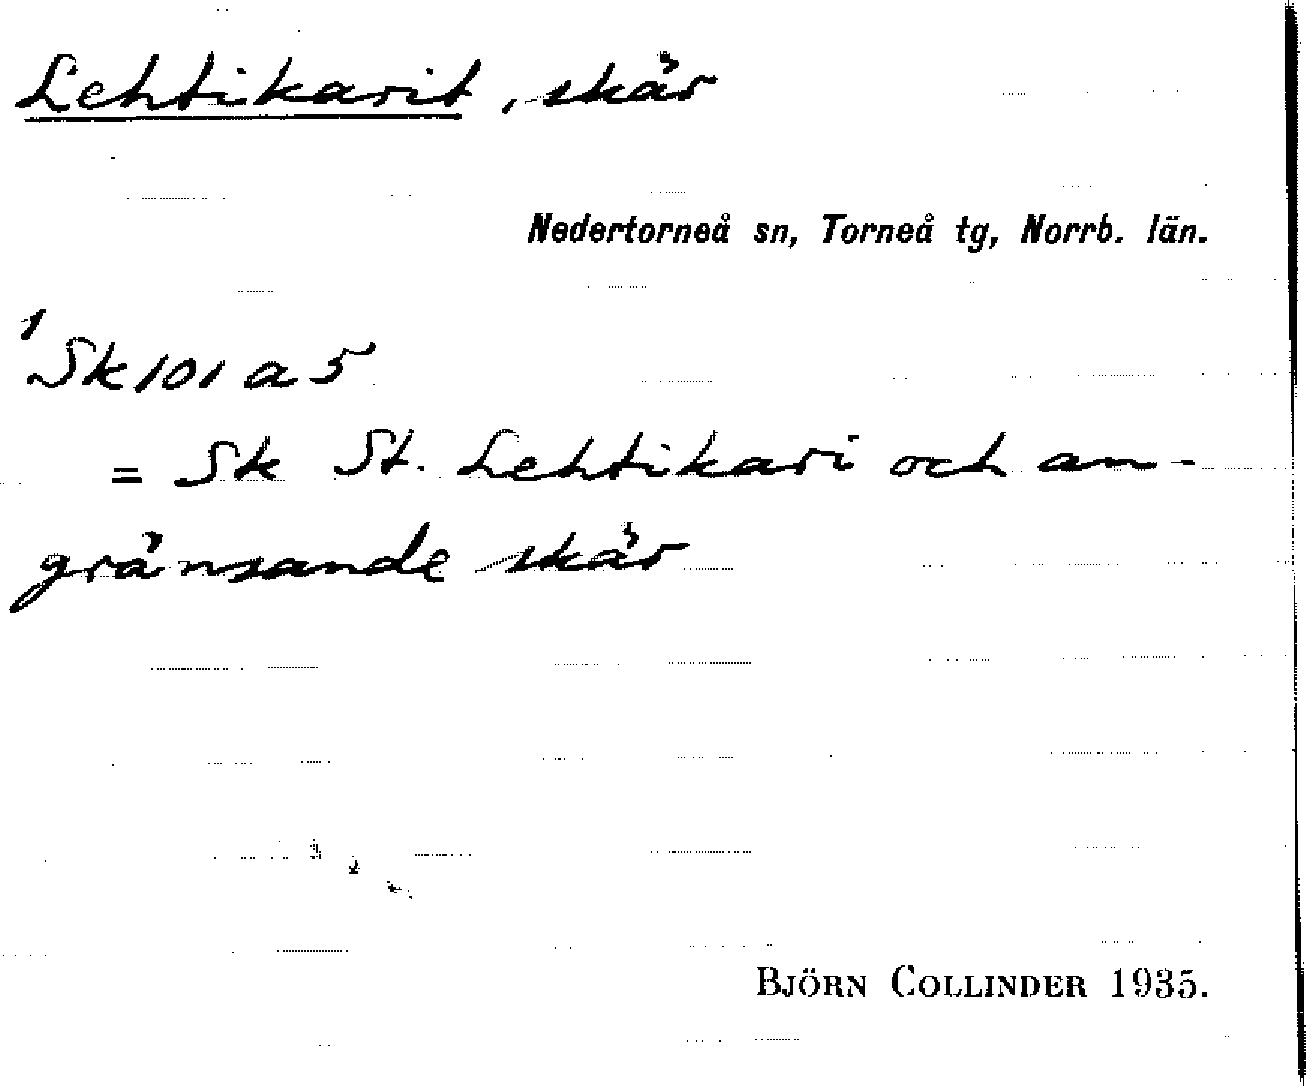 Lehtikarit, skär
Nedertorneå sn, Torneå tg, Norrb. län.
1
Sk 101 a 5
= Sk St. Lehtikari och an-
gränsande skär
BJÖRN COLLINDER 1935.